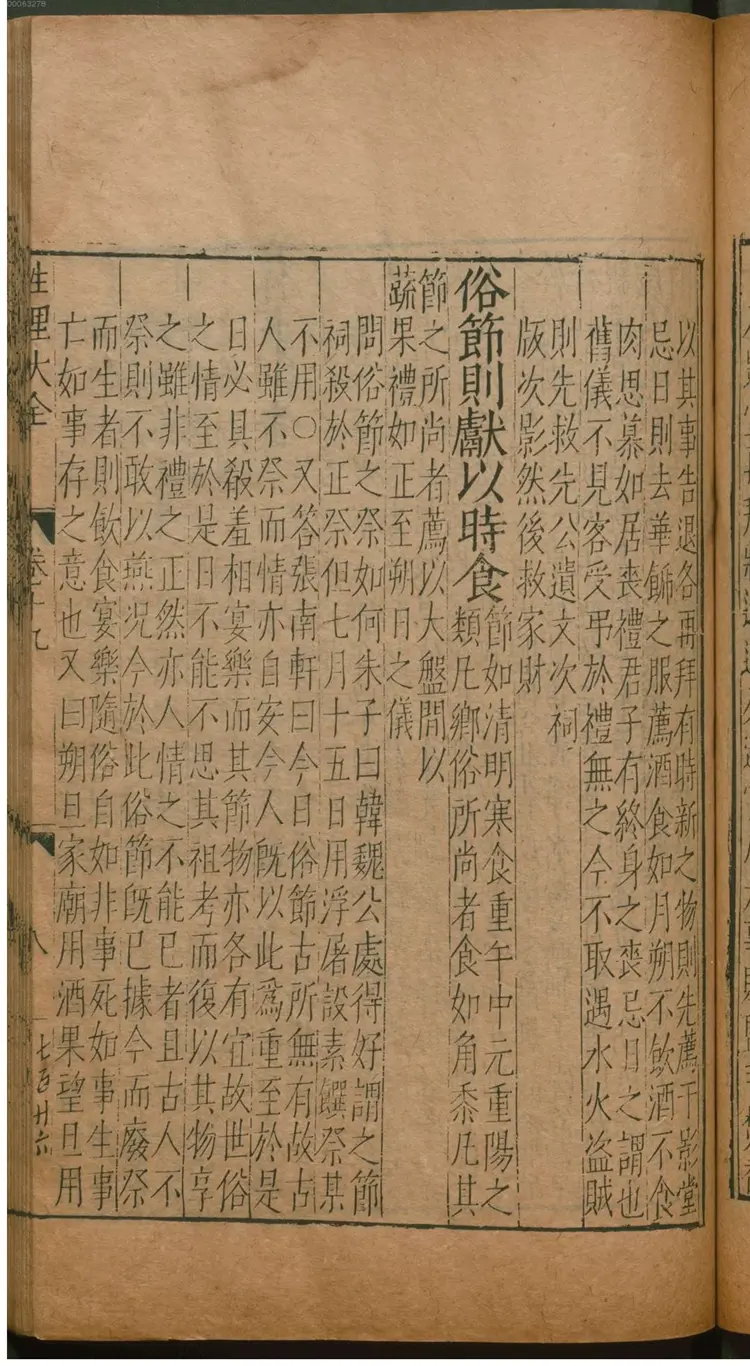 00063278
以其事告退各再拜有時新之物則先薦于影堂
忌日則去華餙之服薦酒食如月朔不飲酒不食
肉思慕如居喪禮君子有終身之喪忌日之謂也
舊儀不見客受弔於禮無之今不取遇水火盜賊
則先救先公遺文次祠
版次影然後救家財
俗節則獻以時食
節如清明寒食重午中元重陽之
類凡鄉俗所尚者食如角黍凡其
節之所尚者薦以大盤間以
蔬果禮如正至朔日之儀
問俗節之祭如何朱子曰韓魏公處得好謂之節
祠殺於正祭但七月十五日用浮屠設素饌祭某
不用○又答張南軒曰今日俗節古所無有故古
人雖不祭而情亦自安今人旣以此爲重至於是
日必具殽羞相宴樂而其節物亦各有宜故世俗
之情至於是日不能不思其祖考而復以其物享
之雖非禮之正然亦人情之不能已者且古人不
祭則不敢以燕况今於此俗節旣已據今而廢祭
而生者則飲食宴樂隨俗自如非事死如事生事
亡如事存之意也又曰朔旦家廟用酒果望旦用
性理大全 卷十九 八 七百廿六